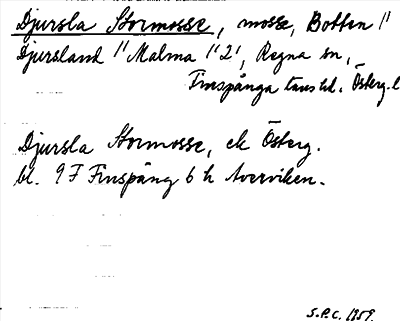 Djursla Stormosse, mosse, Botten //
Djursland // Malma // 2', Regna sn,
Finspånga läns hd. Österg. l
Djursla Stormosse, ek Österg.
bl. 9 F Finspång 6 h Averviken.
S.P.C. 1959.